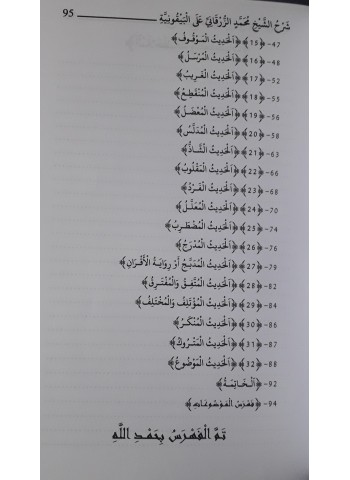 شَرْحُ الشَّيْخِ مُحَمَّدٍ الزُّرْقَانِيِّ عَلَى الْبَيْقُونِيَّةِ 95
47- ﴿15﴾ ﴿اَلْحَدِيثُ الْمَوْقُوفُ﴾
48- ﴿16﴾ ﴿اَلْحَدِيثُ الْمُرْسَلُ﴾
52- ﴿17﴾ ﴿اَلْحَدِيثُ الْغَرِيبُ﴾
55- ﴿18﴾ ﴿اَلْحَدِيثُ الْمُنْقَطِعُ﴾
56- ﴿19﴾ ﴿اَلْحَدِيثُ الْمُعْضَلُ﴾
58- ﴿20﴾ ﴿اَلْحَدِيثُ الْمُدَلَّسُ﴾
63- ﴿21﴾ ﴿اَلْحَدِيثُ الشَّاذُّ﴾
66- ﴿22﴾ ﴿اَلْحَدِيثُ الْمَقْلُوبُ﴾
68- ﴿23﴾ ﴿اَلْحَدِيثُ الْفَرْدُ﴾
70- ﴿24﴾ ﴿اَلْحَدِيثُ الْمُعَلَّلُ﴾
74- ﴿25﴾ ﴿اَلْحَدِيثُ الْمُضْطَرِبُ﴾
76- ﴿26﴾ ﴿اَلْحَدِيثُ الْمُدْرَجُ﴾
79- ﴿27﴾ ﴿اَلْحَدِيثُ الْمُدَبَّجُ أَوْ رِوَايَةُ الْأَقْرَانِ﴾
82- ﴿28﴾ ﴿اَلْحَدِيثُ الْمُتَّفِقُ وَالْمُفْتَرِقُ﴾
84- ﴿29﴾ ﴿اَلْحَدِيثُ الْمُؤْتَلِفُ وَالْمُخْتَلِفُ﴾
86- ﴿30﴾ ﴿اَلْحَدِيثُ الْمُنْكَرُ﴾
87- ﴿31﴾ ﴿اَلْحَدِيثُ الْمَتْرُوكُ﴾
88- ﴿32﴾ ﴿اَلْحَدِيثُ الْمَوْضُوعُ﴾
92- ﴿اَلْخَاتِمَةُ﴾
94- ﴿فَهْرَسُ الْمَوْضُوعَاتِ﴾
تَمَّ الْفَهْرَسُ بِحَمْدِ اللَّهِ